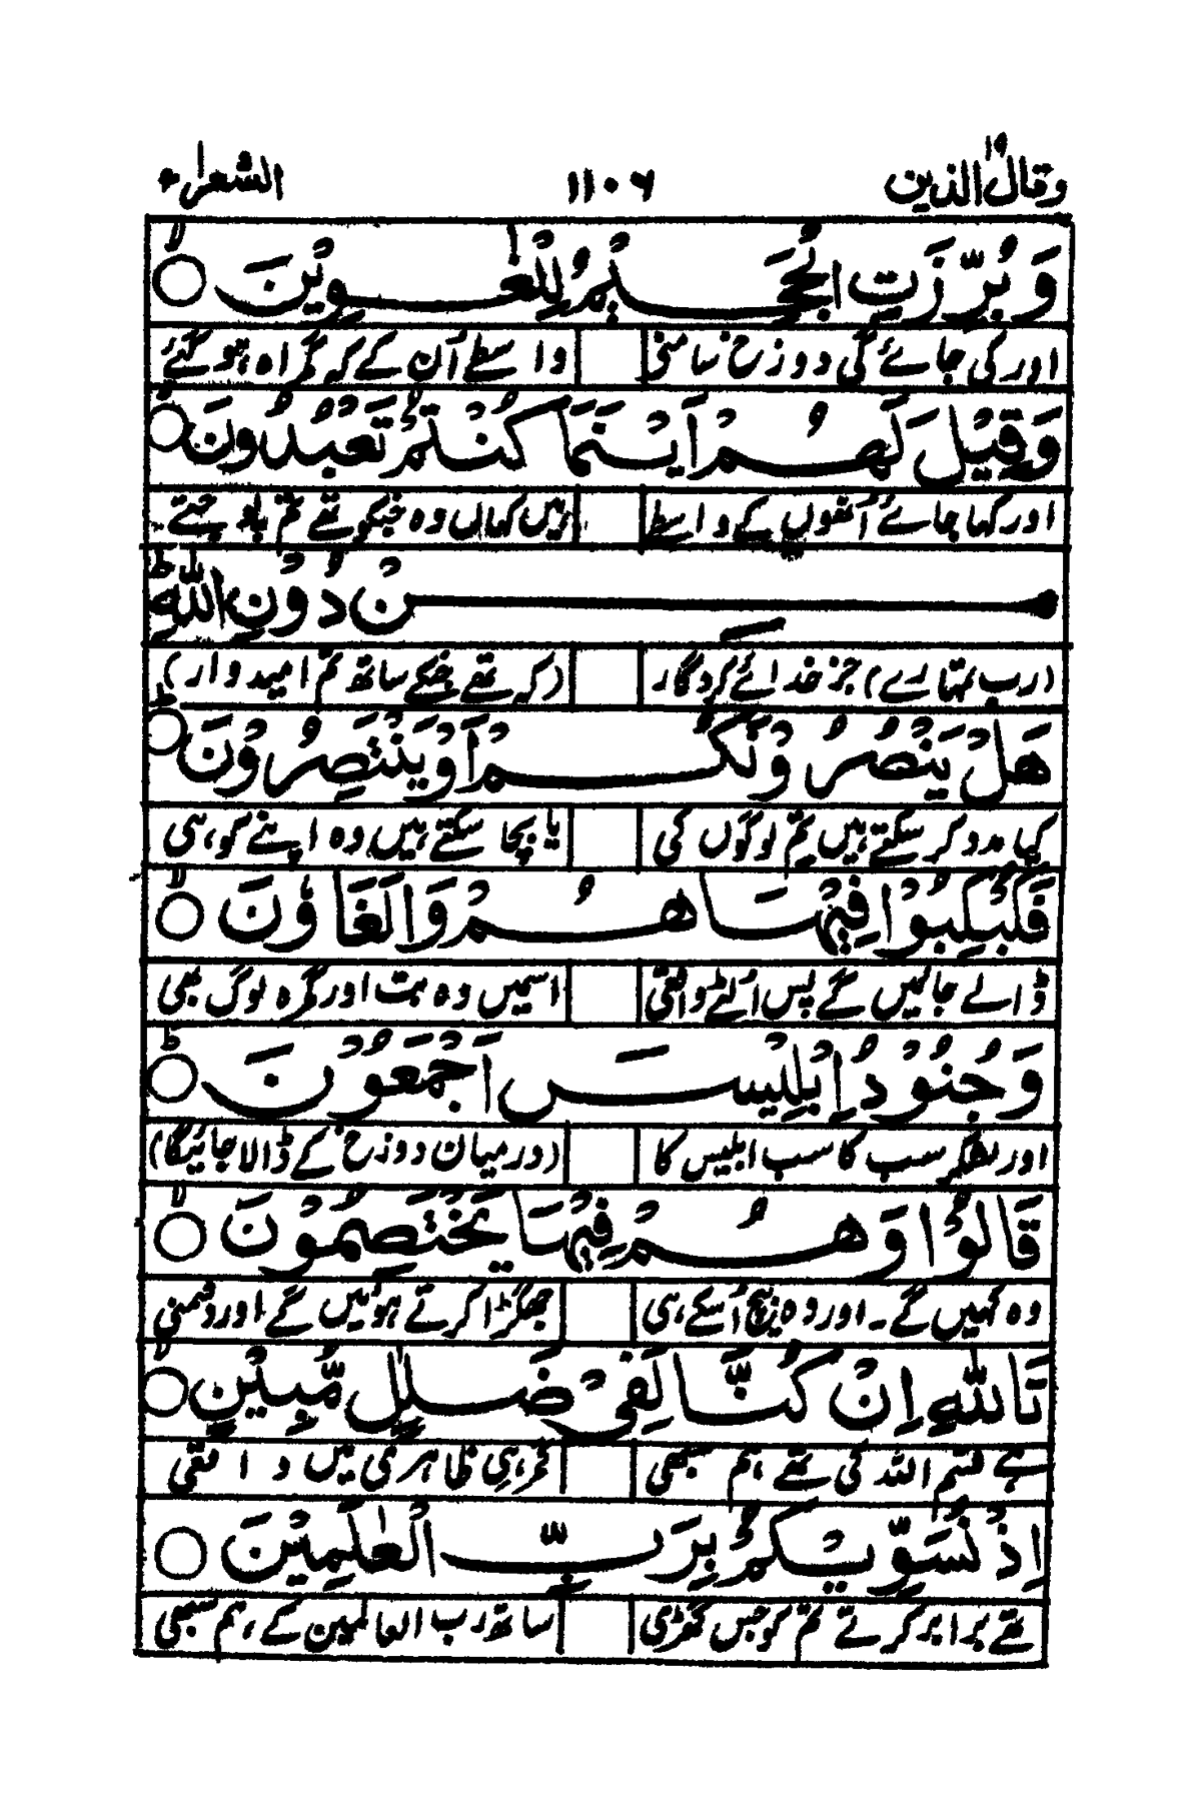 وقال الذین ۱۹ ۱۱۰۶ الشعراء
وَ بُرِّزَتِ الْجَحِيْمُ لِلْغٰوِيْنَ ۙ
اور کی جائے گی دوزخ سامنے واسطے اُن کے کہ گمراہ ہو گئے
وَقِيْلَ لَهُمْ اَيْنَمَا كُنْتُمْ تَعْبُدُوْنَ ۙ
اور کہا جائے اُنھوں کے واسطے ہیں کہاں وہ جنکو تھے تم پوجتے
مِنْ دُوْنِ اللّٰهِ ؕ
(رب تمہارے) جز خدائے کردگار (کہ تھے جنکے ساتھ تم امیدوار)
هَلْ يَنْصُرُوْنَكُمْ اَوْ يَنْتَصِرُوْنَ ؕ
کیا مدد کر سکتے ہیں تم لوگوں کی یا بچا سکتے ہیں وہ اپنے کو ہی
فَكُبْكِبُوْا فِيْهَا هُمْ وَالْغَاوٗنَ ۙ
ڈالے جائیں گے پس اُلٹے واقعی اسمیں وہ بت اور گمرہ لوگ بھی
وَجُنُوْدُ اِبْلِيْسَ اَجْمَعُوْنَ ؕ
اور لشکر سب کا سب ابلیس کا (درمیان دوزخ کے ڈالا جائیگا)
قَالُوْا وَهُمْ فِيْهَا يَخْتَصِمُوْنَ ۙ
وہ کہیں گے۔ اور وہ بیچ اُسکے ہی جھگڑا کرتے ہوئیں گے اور دشمنی
تَاللّٰهِ اِنْ كُنَّا لَفِيْ ضَلٰلٍ مُّبِيْنٍ ۙ
ہے قسم اللہ کی تھے ہم سبھی گمرہی ظاہری میں واقعی
اِذْ نُسَوِّيْكُمْ بِرَبِّ الْعٰلَمِيْنَ
تھے برابر کرتے تم کو جس گھڑی ساتھ رب العالمین کے ہم سبھی